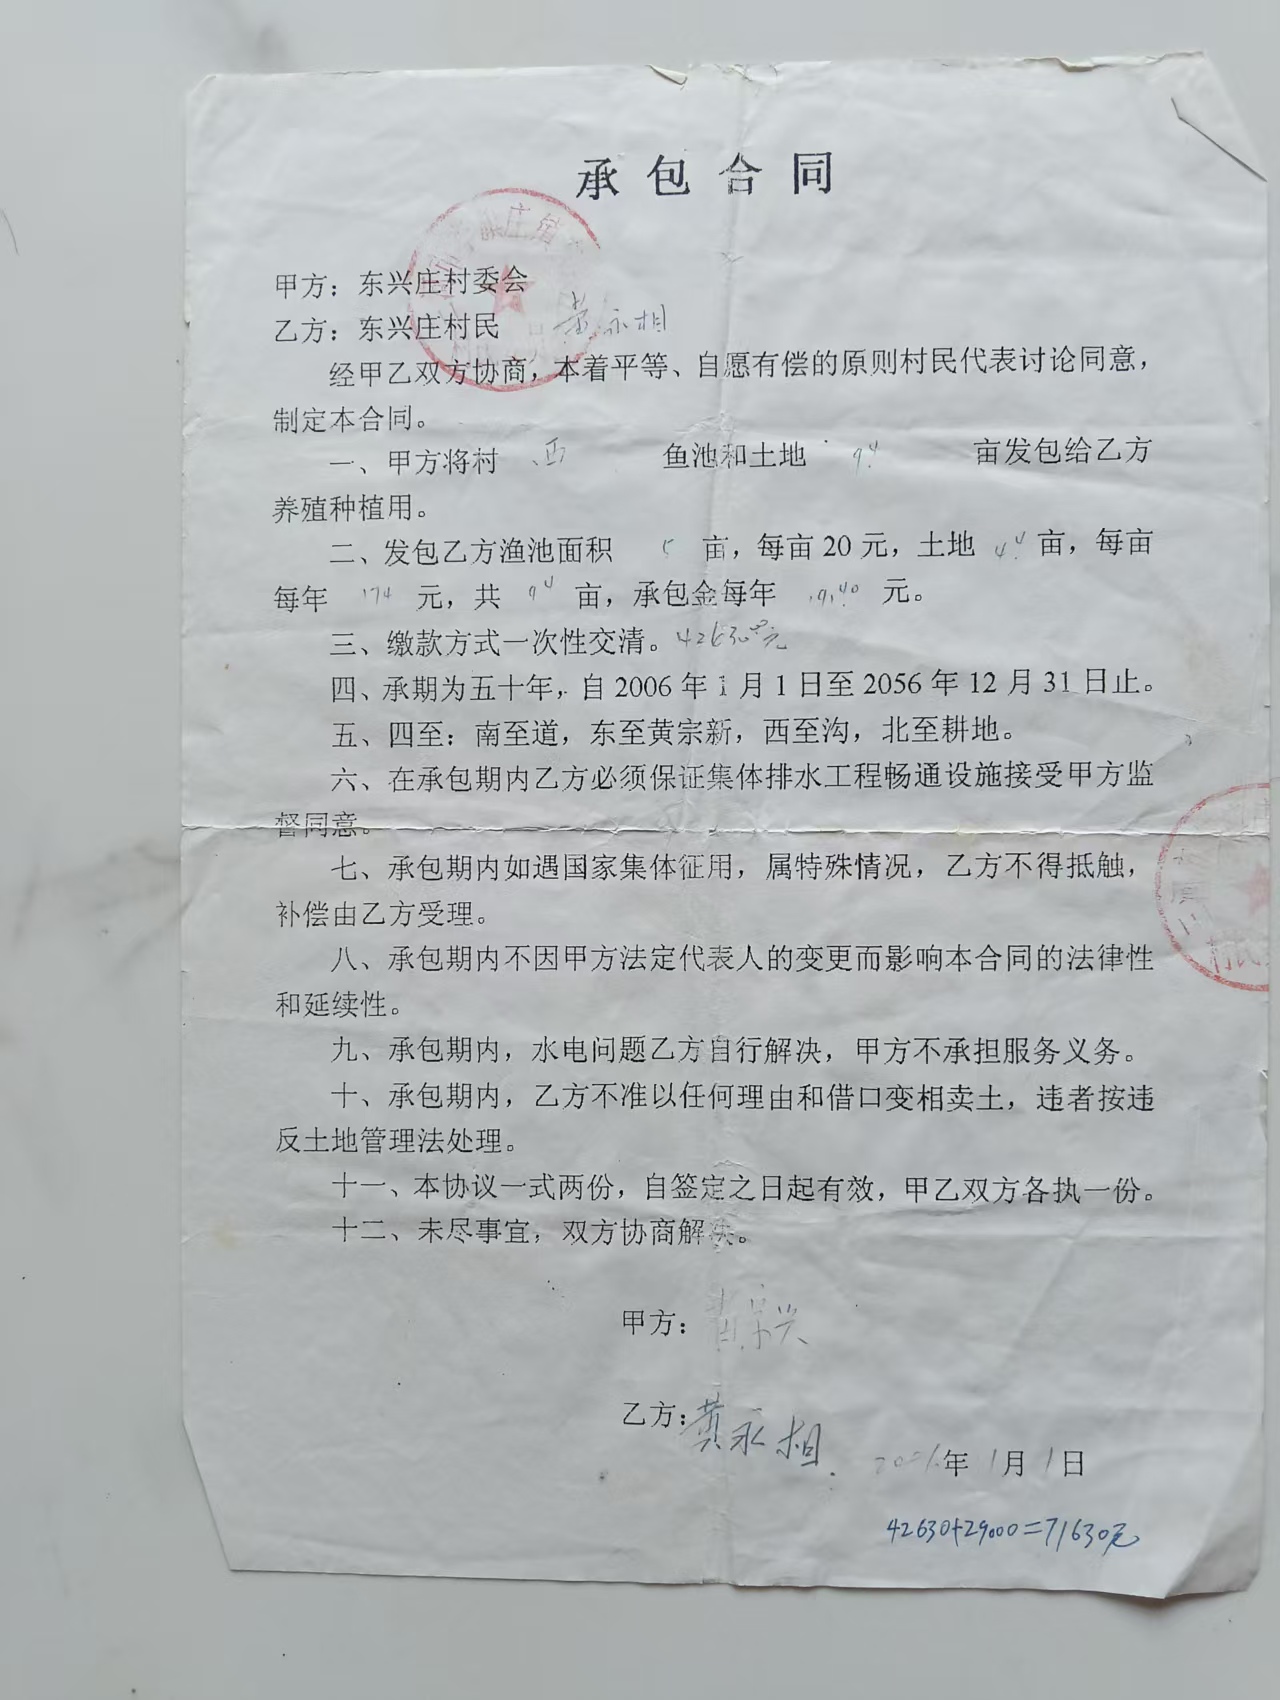 承包合同
甲方：东兴庄村委会
乙方：东兴庄村民 黄永相
经甲乙双方协商，本着平等、自愿有偿的原则村民代表讨论同意，
制定本合同。
一、甲方将村 西 鱼池和土地 9.4 亩发包给乙方
养殖种植用。
二、发包乙方渔池面积 5 亩，每亩20元，土地 4.4 亩，每亩
每年 174 元，共 9.4 亩，承包金每年 元。
三、缴款方式一次性交清。42630.00元
四、承期为五十年，自2006年1月1日至2056年12月31日止。
五、四至：南至道，东至黄宗新，西至沟，北至耕地。
六、在承包期内乙方必须保证集体排水工程畅通设施接受甲方监
督同意。
七、承包期内如遇国家集体征用，属特殊情况，乙方不得抵触，
补偿由乙方受理。
八、承包期内不因甲方法定代表人的变更而影响本合同的法律性
和延续性。
九、承包期内，水电问题乙方自行解决，甲方不承担服务义务。
十、承包期内，乙方不准以任何理由和借口变相卖土，违者按违
反土地管理法处理。
十一、本协议一式两份，自签定之日起有效，甲乙双方各执一份。
十二、未尽事宜，双方协商解决。
甲方：
乙方：黄永相
2006年1月1日
42630+29000=71630元